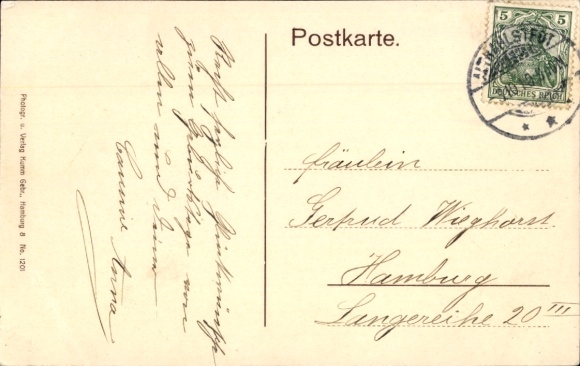 Postkarte.
5
DEUTSCHES REICH
Recht herzliche Glückwünsche
zum Geburtstage von
allen und Deiner
Cousine Anna
Photogr. u. Verlag Kumm Gebr., Hamburg 8 No. 1201
Fräulein
Gertrud Wieghorst.
Hamburg
Langereihe 20 III